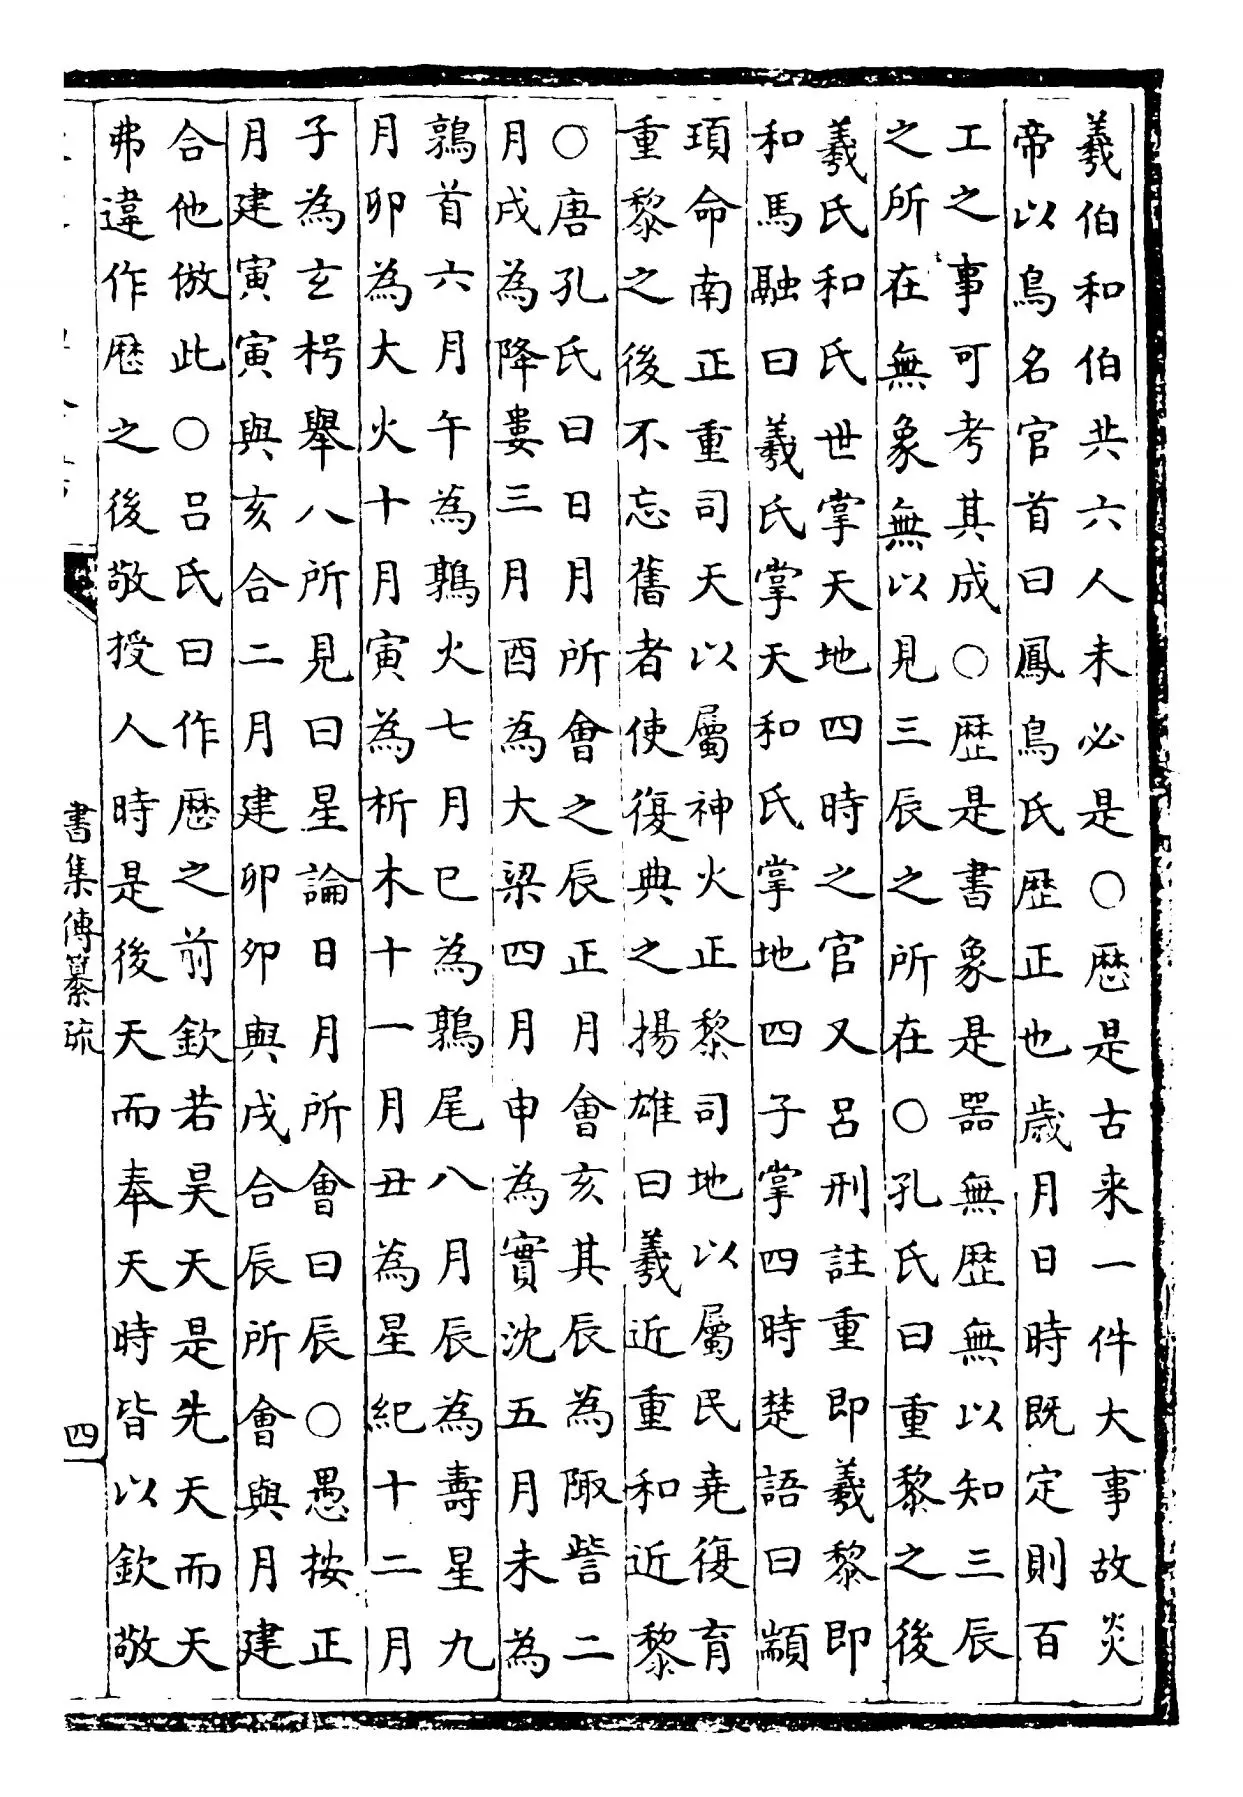 羲伯和伯共六人未必是○厯是古来一件大事故炎
帝以鳥名官首曰鳳鳥氏厯正也歲月日時既定則百
工之事可考其成○厯是書象是器無厯無以知三辰
之所在無象無以見三辰之所在○孔氏曰重黎之後
羲氏和氏世掌天地四時之官又呂刑註重即羲黎即
和馬融曰羲氏掌天和氏掌地四子掌四時楚語曰顓
頊命南正重司天以屬神火正黎司地以屬民堯復育
重黎之後不忘舊者使復典之揚雄曰羲近重和近黎
○唐孔氏曰日月所會之辰正月會亥其辰為陬訾二
月戌為降婁三月酉為大梁四月申為實沈五月未為
鶉首六月午為鶉火七月巳為鶉尾八月辰為壽星九
月卯為大火十月寅為析木十一月丑為星紀十二月
子為玄枵舉八所見曰星論日月所會曰辰○愚按正
月建寅寅與亥合二月建卯卯與戌合辰所會與月建
合他倣此○呂氏曰作厯之前欽若昊天是先天而天
弗違作厯之後敬授人時是後天而奉天時皆以欽敬
書集傳纂疏
四